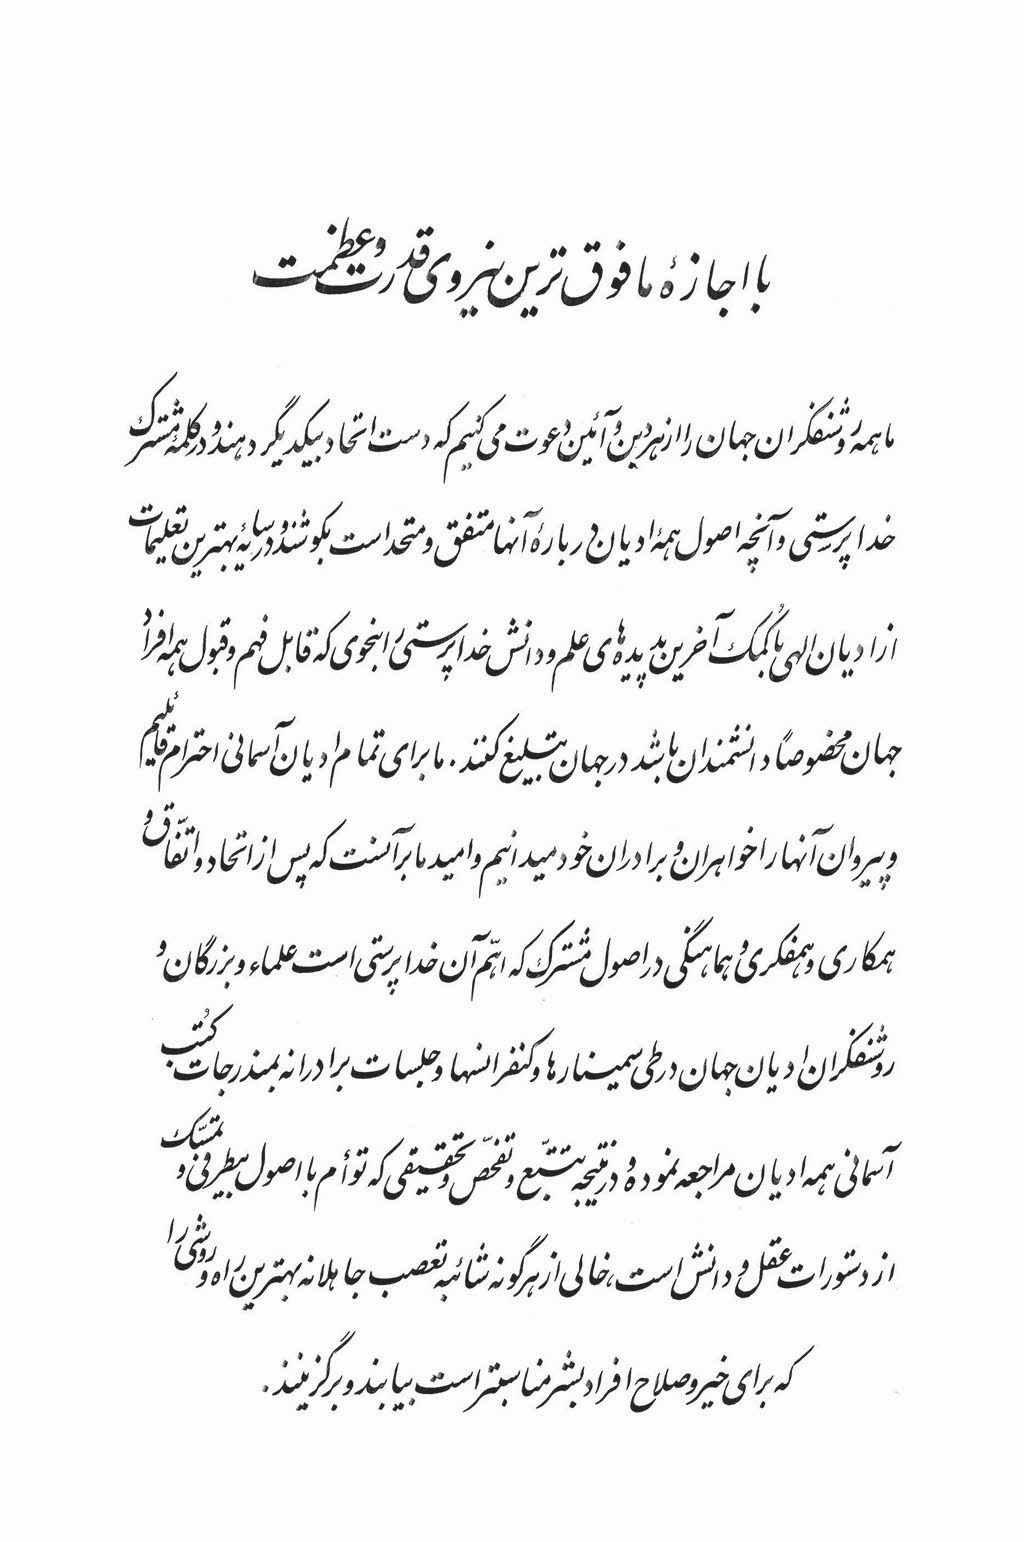 با اجازهٔ مافوق ترین نیروی قدرت و عظمت
ما همه روشنفکران جهان را از هر دین و آئین دعوت می کنیم که دست اتحاد بیکدیگر دهند و در کلمهٔ مشترک
خدا پرستی و آنچه اصول همهٔ ادیان در بارهٔ آنها متفق و متحد است بکوشند و در سایهٔ بهترین تعلیمات
از ادیان الهی با کُمک آخرین پدیده های علم و دانش خدا پرستی را بنحوی که قابل فهم و قبول همه افراد
جهان مخصوصاً دانشمندان باشد در جهان تبلیغ کنند . ما برای تمام ادیان آسمانی احترام قائلیم
و پیروان آنها را خواهران و برادران خود میدانیم و امید ما بر آنست که پس از اتحاد و اتّفاق و
همکاری و همفکری و هماهنگی در اصول مشترک که اهّم آن خدا پرستی است علماء و بزرگان و
روشنفکران ادیان جهان در طی سمینارها و کنفرانسها و جلسات برادرانه بمندرجات کُتب
آسمانی همه ادیان مراجعه نموده و در نتیجه تتبّع و تفحّص و تحقیقی که توأم با اصول بیطرفی و تمسّک
از دستورات عقل و دانش است ، خالی از هر گونه شائبه تعصب جاهلانه بهترین راه و روشی را
که برای خیر و صلاح افراد بشر مناسبتر است بیابند و بر گزینند .